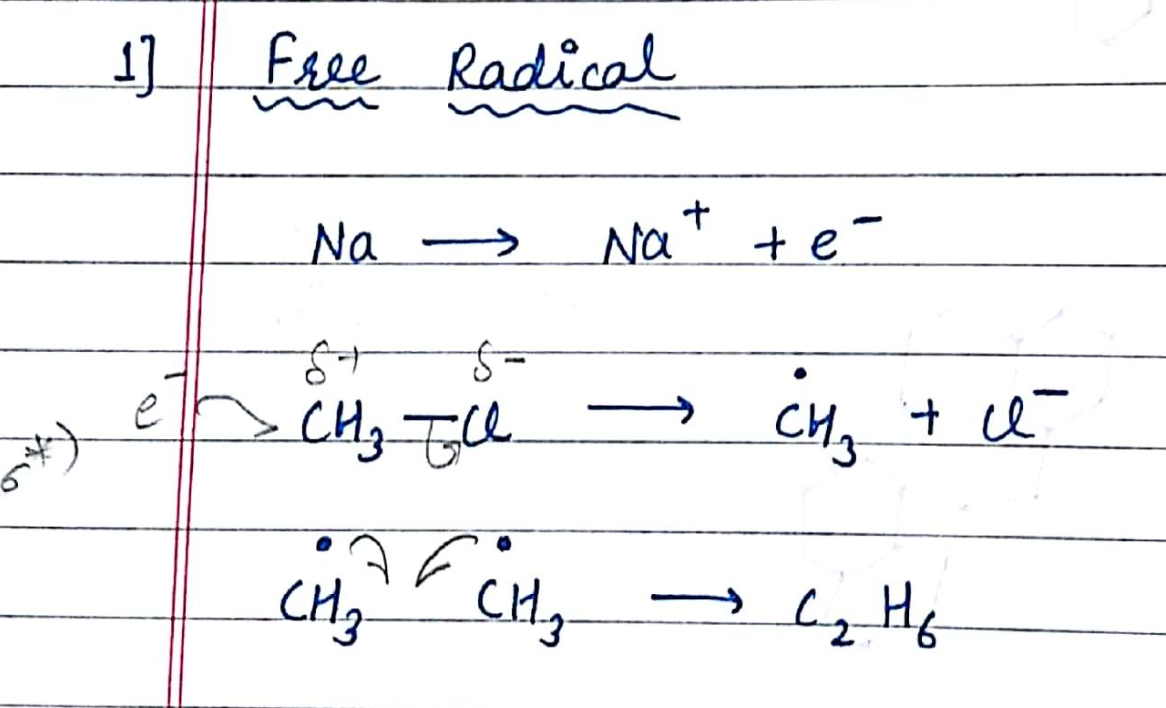 1] Free Radical
Na → Na⁺ + e⁻
δ+ δ-
e⁻ CH₃ – Cl → ĊH₃ + Cl⁻
σ*)
ĊH₃ ĊH₃ → C₂H₆